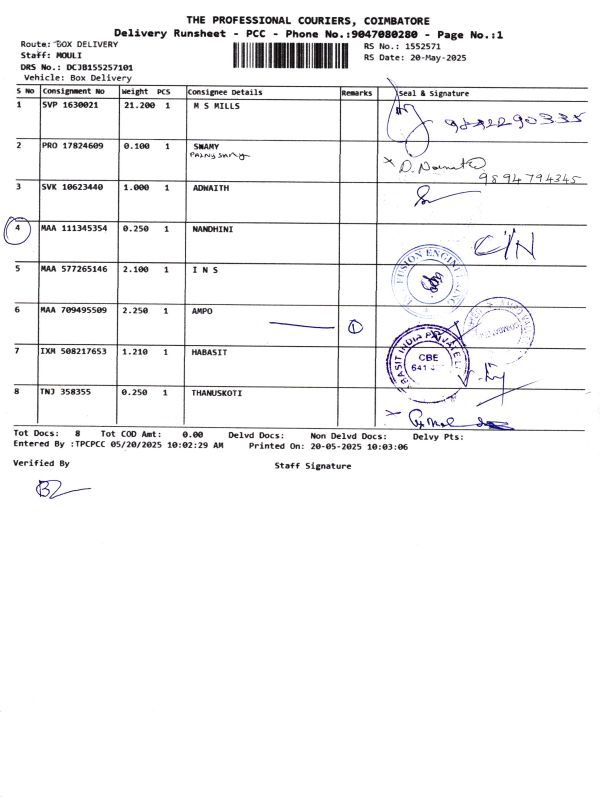 THE PROFESSIONAL COURIERS, COIMBATORE
Delivery Runsheet - PCC - Phone No.:9047080280 - Page No.:1
Route: BOX DELIVERY
RS No.: 1552571
Staff: MOULI
RS Date: 20-May-2025
DRS No.: DCJB155257101
Vehicle: Box Delivery
S No Consignment No Weight PCS Consignee Details Remarks Seal & Signature
1 SVP 1630021 21.200 1 M S MILLS
2 PRO 17824609 0.100 1 SWAMY
9894794345
3 SVK 10623440 1.000 1 ADWAITH
4 MAA 111345354 0.250 1 NANDHINI
C/N
5 MAA 577265146 2.100 1 I N S
FUSION ENGINEERING
6 MAA 709495509 2.250 1 AMPO
1
7 IXM 508217653 1.210 1 HABASIT
CBE
8 TNJ 358355 0.250 1 THANUSKOTI
Tot Docs: 8 Tot COD Amt: 0.00 Delvd Docs: Non Delvd Docs: Delvy Pts:
Entered By :TPCPCC 05/20/2025 10:02:29 AM Printed On: 20-05-2025 10:03:06
Verified By Staff Signature